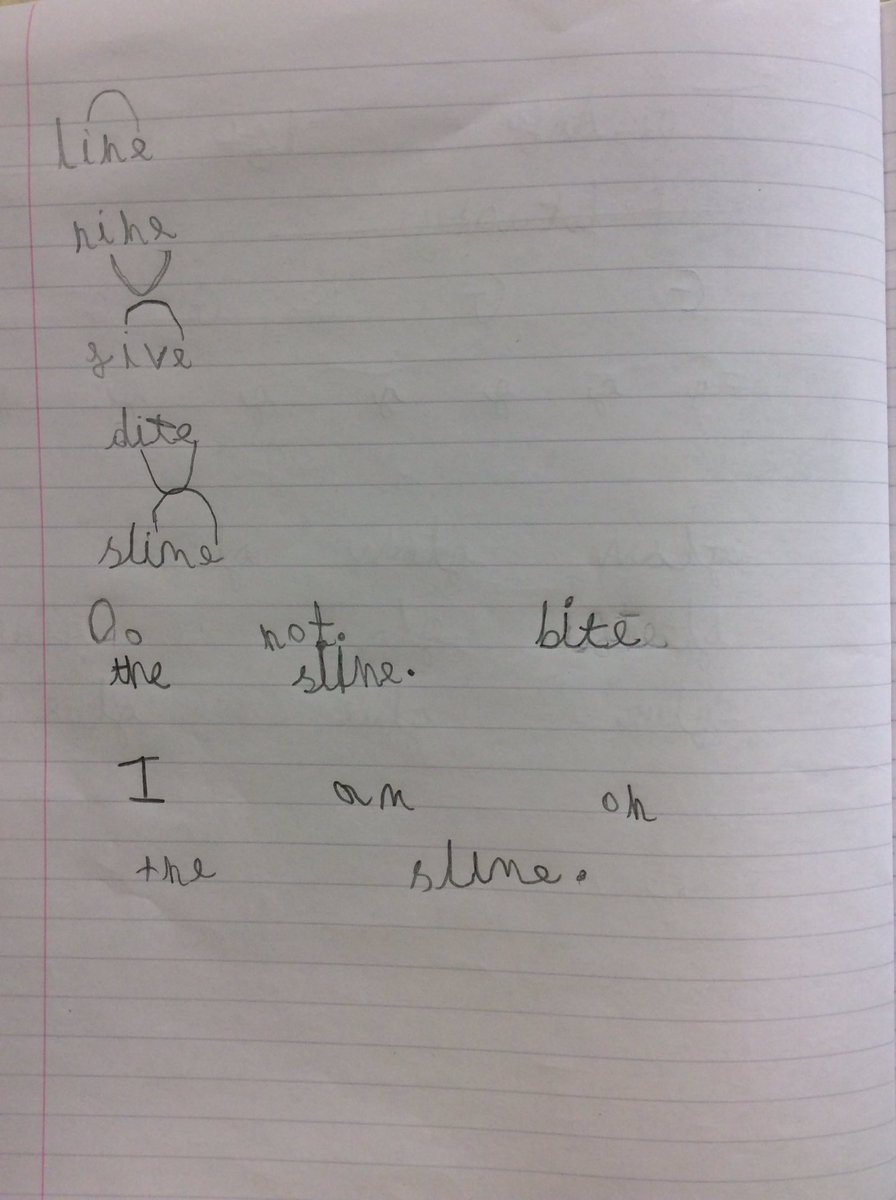 line
nine
five
dite
sline
Do not. bite
the sline.
I am on
the sline.